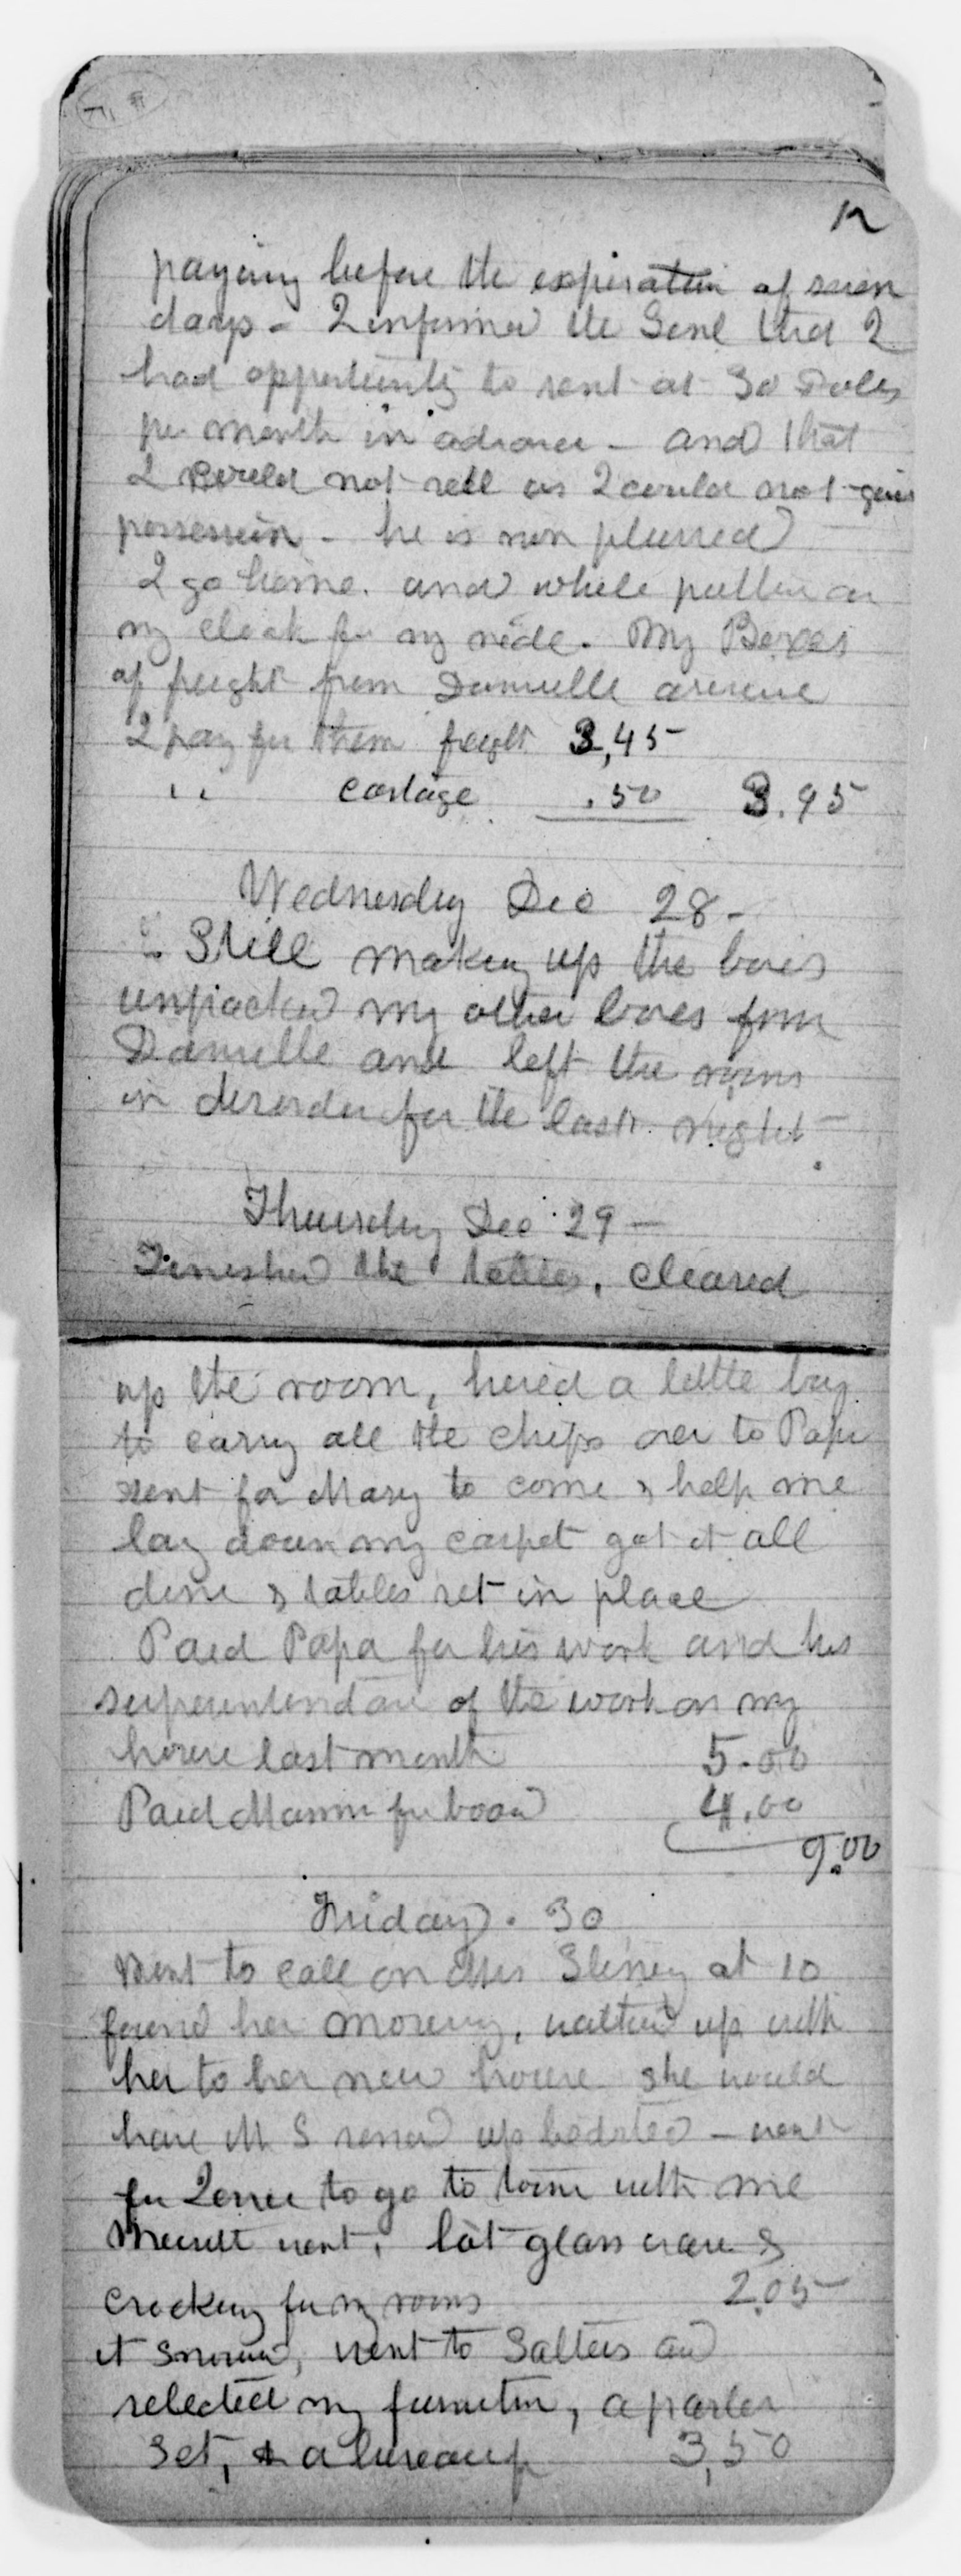 12
paying before the expiration of seven
days - I informed the Genl that I
had opportunity to rent at 30 Dolls
per month in advance - and that
I could not sell as I could not give
possession - he is non plussed
I go home. and while putting on
my cloak for my ride. My Boxes
of freight from Dansville arrive
I pay for them freight 3,45
" cartage .50 3.95
Wednesday Dec 28 -
Still making up the boxes
unpacked my other boxes from
Dansville and left the rooms
in disorder for the last night -
Thursday Dec 29 -
Finished the tables, cleared
up the room, hired a little boy
to carry all the chips over to Papa
sent for Mary to come & help me
lay down my carpet got it all
done & tables set in place
Paid Papa for his work and his
superintendance of the work on my
house last month 5.00
Paid Mamm for board 4.00
9.00
Friday. 30
Went to call on at 10
found her moving, walked up with
her to her new house she would
have M S up bedsted - went
for to go to town with me
went, glass ware &
crockery for my rooms 2.05
it snowed, went to Salters and
selected my furniture, a parlor
set, & a bureau 3,50